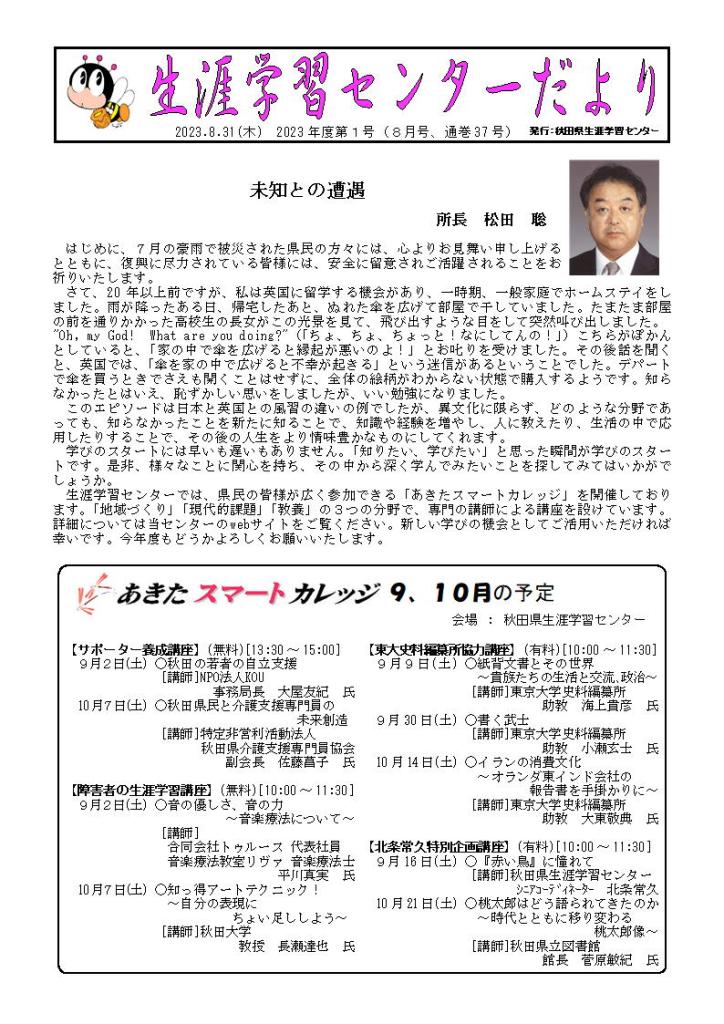 生涯学習センターだより
2023.8.31(木)　2023年度第1号（8月号、通巻37号）　発行：秋田県生涯学習センター
未知との遭遇
所長　松田　聡
はじめに、7月の豪雨で被災された県民の方々には、心よりお見舞い申し上げる
とともに、復興に尽力されている皆様には、安全に留意されご活躍されることをお
祈りいたします。
さて、20年以上前ですが、私は英国に留学する機会があり、一時期、一般家庭でホームステイをし
ました。雨が降ったある日、帰宅したあと、ぬれた傘を広げて部屋で干していました。たまたま部屋
の前を通りかかった高校生の長女がこの光景を見て、飛び出すような目をして突然叫び出しました。
"Oh, my God!　What are you doing?"（「ちょ、ちょ、ちょっと！なにしてんの！」）こちらがぽかん
としていると、「家の中で傘を広げると縁起が悪いのよ！」とお叱りを受けました。その後話を聞く
と、英国では、「傘を家の中で広げると不幸が起きる」という迷信があるということでした。デパート
で傘を買うときでさえも開くことはせずに、全体の絵柄がわからない状態で購入するようです。知ら
なかったとはいえ、恥ずかしい思いをしましたが、いい勉強になりました。
このエピソードは日本と英国との風習の違いの例でしたが、異文化に限らず、どのような分野であ
っても、知らなかったことを新たに知ることで、知識や経験を増やし、人に教えたり、生活の中で応
用したりすることで、その後の人生をより情味豊かなものにしてくれます。
学びのスタートには早いも遅いもありません。「知りたい、学びたい」と思った瞬間が学びのスター
トです。是非、様々なことに関心を持ち、その中から深く学んでみたいことを探してみてはいかがで
しょうか。
生涯学習センターでは、県民の皆様が広く参加できる「あきたスマートカレッジ」を開催しており
ます。「地域づくり」「現代的課題」「教養」の3つの分野で、専門の講師による講座を設けています。
詳細については当センターのwebサイトをご覧ください。新しい学びの機会としてご活用いただければ
幸いです。今年度もどうかよろしくお願いいたします。
あきた スマート カレッジ 9、10月の予定
会場 ： 秋田県生涯学習センター
【サポーター養成講座】(無料)[13:30～15:00]
9月2日(土) ○秋田の若者の自立支援
[講師]NPO法人KOU
事務局長　大屋友紀　氏
10月7日(土) ○秋田県民と介護支援専門員の
未来創造
[講師]特定非営利活動法人
秋田県介護支援専門員協会
副会長　佐藤菖子　氏
【障害者の生涯学習講座】(無料)[10:00～11:30]
9月2日(土) ○音の優しさ、音の力
～音楽療法について～
[講師]
合同会社トゥルース 代表社員
音楽療法教室リヴァ 音楽療法士
平川真実　氏
10月7日(土) ○知っ得アートテクニック！
～自分の表現に
ちょい足ししよう～
[講師]秋田大学
教授　長瀬達也　氏
【東大史料編纂所協力講座】(有料)[10:00～11:30]
9月9日(土) ○紙背文書とその世界
～貴族たちの生活と交流、政治～
[講師]東京大学史料編纂所
助教　海上貴彦　氏
9月30日(土) ○書く武士
[講師]東京大学史料編纂所
助教　小瀬玄士　氏
10月14日(土) ○イランの消費文化
～オランダ東インド会社の
報告書を手掛かりに～
[講師]東京大学史料編纂所
助教　大東敬典　氏
【北条常久特別企画講座】(有料)[10:00～11:30]
9月16日(土) ○『赤い鳥』に憧れて
[講師]秋田県生涯学習センター
ｼﾆｱｺｰﾃﾞｨﾈｰﾀｰ　北条常久
10月21日(土) ○桃太郎はどう語られてきたのか
～時代とともに移り変わる
桃太郎像～
[講師]秋田県立図書館
館長　菅原敏紀　氏